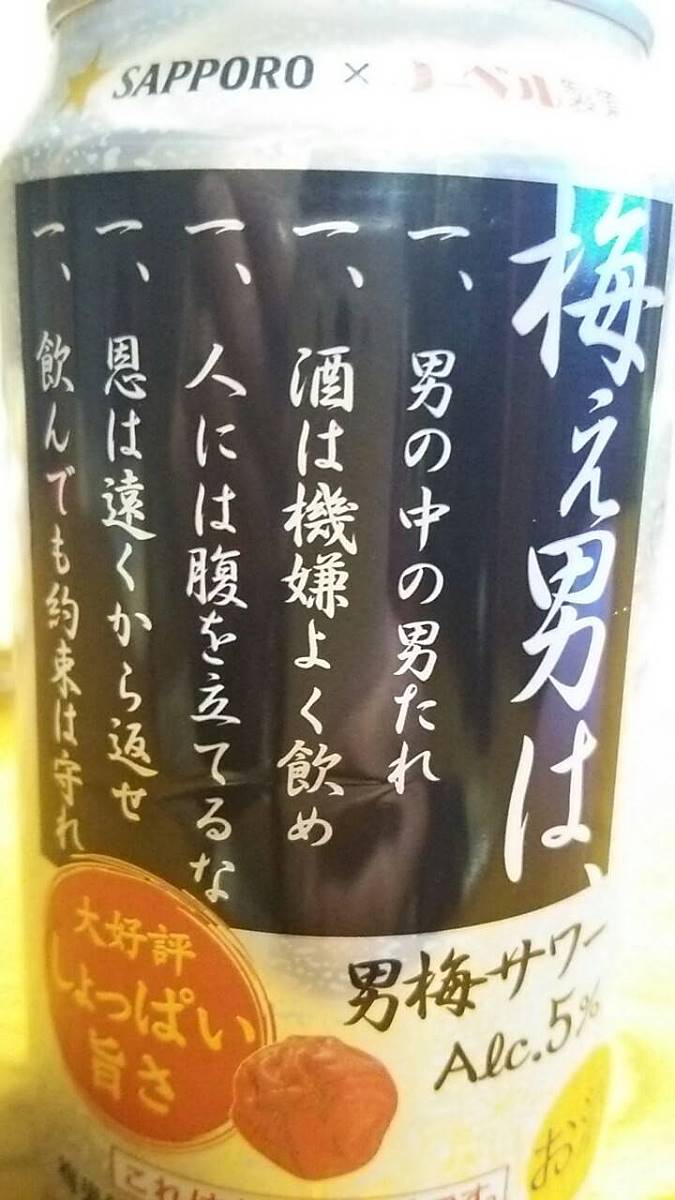 SAPPORO × ノーベル製菓
梅え男は、
一、男の中の男たれ
一、酒は機嫌よく飲め
一、人には腹を立てるな
一、恩は遠くから返せ
一、飲んでも約束は守れ
大好評
しょっぱい
旨さ
男梅サワー
Alc.5%
お
これは